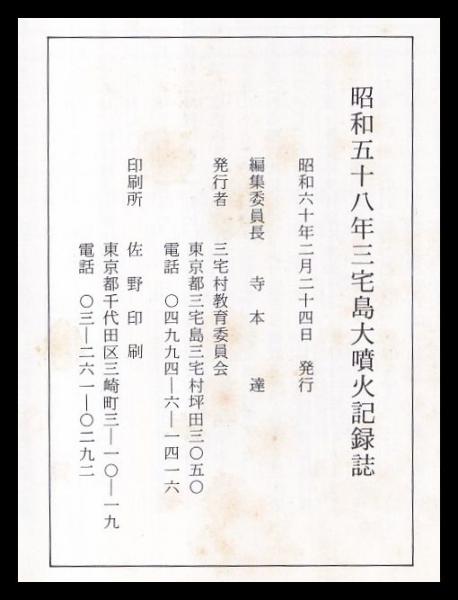 昭和五十八年三宅島大噴火記録誌
昭和六十年二月二十四日　発行
編集委員長　寺本　達
発行者　三宅村教育委員会
東京都三宅島三宅村坪田三〇五〇
電話　〇四九九四―六―一四一六
印刷所　佐野印刷
東京都千代田区三崎町三―一〇―一九
電話　〇三―二六一―〇二九二